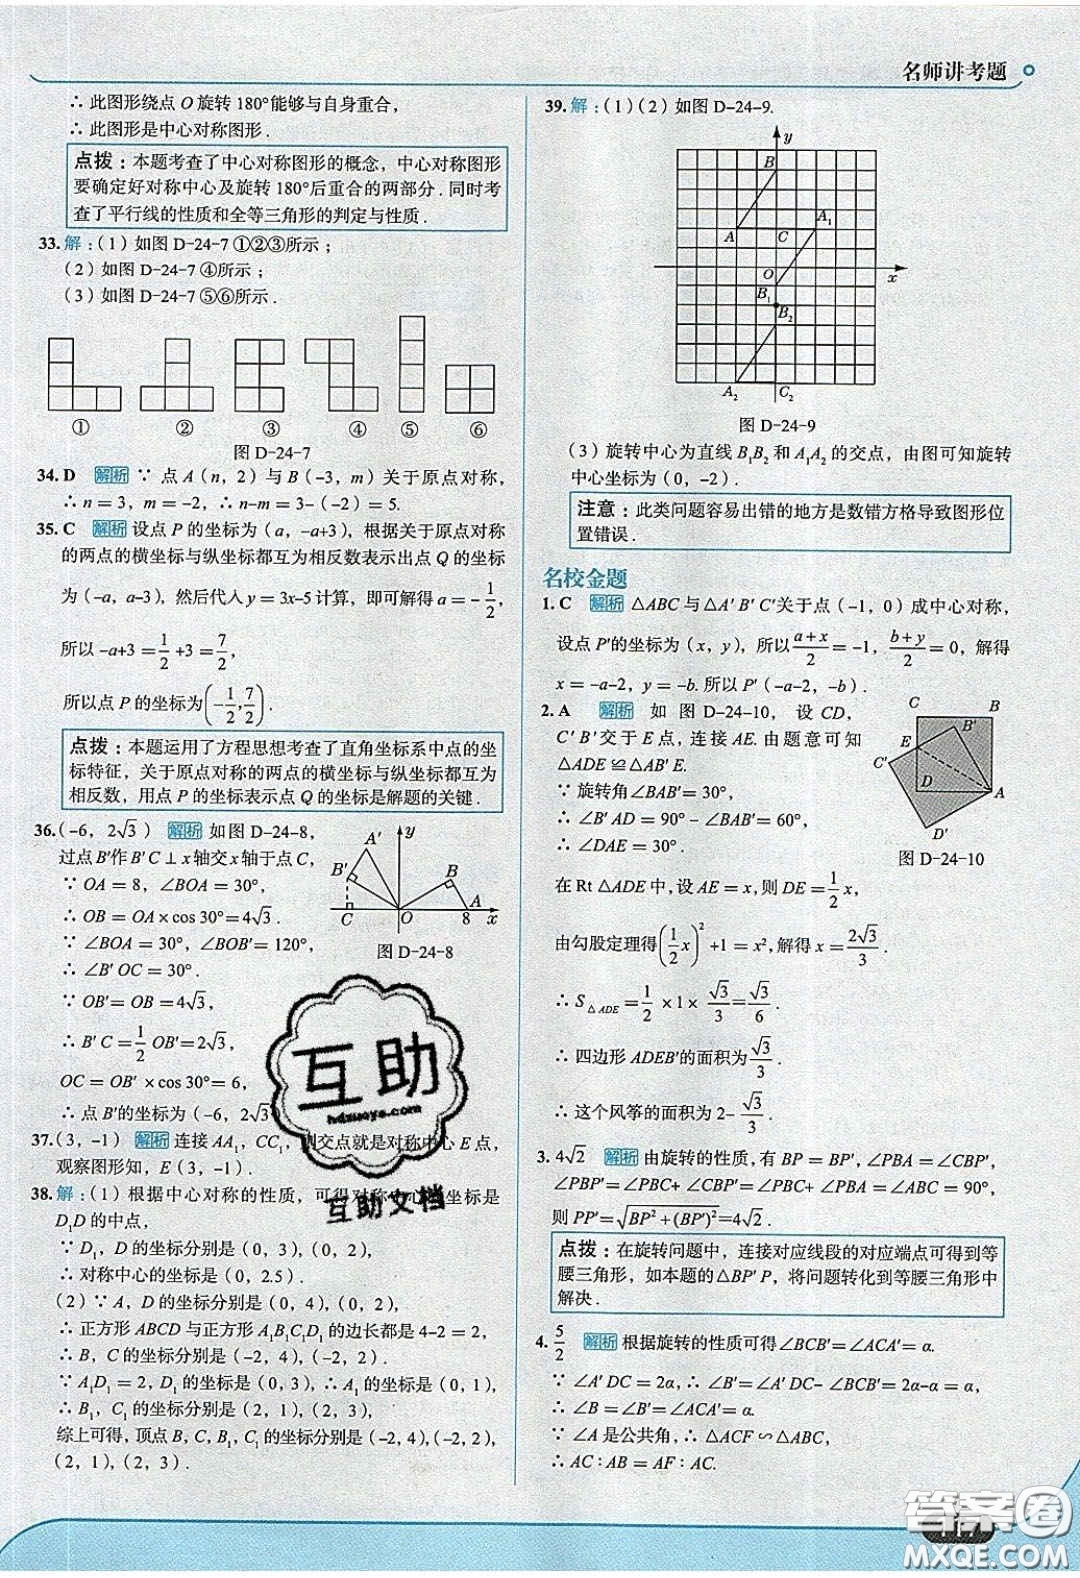 名师讲考题
∴ 此图形绕点 O 旋转 180°能够与自身重合，
∴ 此图形是中心对称图形 .
点拨：本题考查了中心对称图形的概念，中心对称图形
要确定好对称中心及旋转 180°后重合的两部分 . 同时考
查了平行线的性质和全等三角形的判定与性质 .
33. 解：(1) 如图 D-24-7 ①②③所示；
(2) 如图 D-24-7 ④所示；
(3) 如图 D-24-7 ⑤⑥所示 .
① ② ③ ④ ⑤ ⑥
图 D-24-7
34. D 解析 ∵ 点 A (n, 2) 与 B (-3, m) 关于原点对称，
∴ n = 3, m = -2, ∴ n-m = 3- (-2) = 5.
35. C 解析 设点 P 的坐标为 (a, -a+3)，根据关于原点对称
的两点的横坐标与纵坐标都互为相反数表示出点 Q 的坐标
为 (-a, a-3)，然后代入 y = 3x-5 计算，即可解得 a = -1/2，
所以 -a+3 = 1/2 +3 = 7/2，
所以点 P 的坐标为 (-1/2, 7/2) .
点拨：本题运用了方程思想考查了直角坐标系中点的坐
标特征，关于原点对称的两点的横坐标与纵坐标都互为
相反数，用点 P 的坐标表示点 Q 的坐标是解题的关键 .
36. (-6, 2√3) 解析 如图 D-24-8，
过点 B′作 B′C ⊥ x 轴交 x 轴于点 C，
∵ OA = 8, ∠BOA = 30°，
∴ OB = OA × cos 30°= 4√3 .
∵ ∠BOA = 30°, ∠BOB′= 120°，
∴ ∠B′OC = 30° .
∵ OB′= OB = 4√3，
∴ B′C = 1/2 OB′= 2√3，
OC = OB′× cos 30°= 6，
∴ 点 B′的坐标为 (-6, 2√3
A′ y B′ B C O 8 A x
图 D-24-8
37. (3, -1) 解析 连接 AA₁, CC₁, 则交点就是对称中心 E 点，
观察图形知，E (3, -1) .
38. 解：(1) 根据中心对称的性质，可得对称中心的坐标是
D₁D 的中点，
∵ D₁, D 的坐标分别是 (0, 3), (0, 2)，
∴ 对称中心的坐标是 (0, 2.5) .
(2) ∵ A, D 的坐标分别是 (0, 4), (0, 2)，
∴ 正方形 ABCD 与正方形 A₁B₁C₁D₁ 的边长都是 4-2 = 2，
∴ B, C 的坐标分别是 (-2, 4), (-2, 2) .
∵ A₁D₁ = 2, D₁ 的坐标是 (0, 3), ∴ A₁ 的坐标是 (0, 1)，
∴ B₁, C₁ 的坐标分别是 (2, 1), (2, 3)，
综上可得，顶点 B, C, B₁, C₁ 的坐标分别是 (-2, 4), (-2, 2)，
(2, 1), (2, 3) .
39. 解：(1) (2) 如图 D-24-9.
y B A₁ A C O x B₁ B₂ A₂ C₂
图 D-24-9
(3) 旋转中心为直线 B₁B₂ 和 A₁A₂ 的交点，由图可知旋转
中心坐标为 (0, -2) .
注意：此类问题容易出错的地方是数错方格导致图形位
置错误 .
名校金题
1. C 解析 △ABC 与△A′B′C′关于点 (-1, 0) 成中心对称，
设点 P′的坐标为 (x, y)，所以 (a+x)/2 = -1, (b+y)/2 = 0，解得
x = -a-2, y = -b. 所以 P′(-a-2, -b) .
2. A 解析 如图 D-24-10，设 CD,
C′B′交于 E 点，连接 AE. 由题意可知
△ADE ≌ △AB′E.
∵ 旋转角∠BAB′= 30°，
∴ ∠B′AD = 90° - ∠BAB′= 60°，
∴ ∠DAE = 30° .
C B B′ E C′ D A D′
图 D-24-10
在 Rt △ADE 中，设 AE = x，则 DE = 1/2 x，
由勾股定理得 (1/2 x)² +1 = x²，解得 x = 2√3/3 .
∴ S△ADE = 1/2 ×1× √3/3 = √3/6 .
∴ 四边形 ADEB′的面积为 √3/3 .
∴ 这个风筝的面积为 2- √3/3 .
3. 4√2 解析 由旋转的性质，有 BP = BP′, ∠PBA = ∠CBP′,
∠PBP′= ∠PBC+ ∠CBP′= ∠PBC+ ∠PBA = ∠ABC = 90°，
则 PP′= √BP²+(BP′)² = 4√2 .
点拨：在旋转问题中，连接对应线段的对应端点可得到等
腰三角形，如本题的△BP′P，将问题转化到等腰三角形中
解决 .
4. 5/2 解析 根据旋转的性质可得∠BCB′= ∠ACA′= α.
∵ ∠A′DC = 2α, ∴ ∠B′= ∠A′DC- ∠BCB′= 2α-α = α.
∴ ∠B = ∠B′= ∠ACA′= α.
∵ ∠A 是公共角，∴ △ACF ∽ △ABC.
∴ AC : AB = AF : AC.
互助
hdzuoye.com
互助文档
答案圈
MXQE.COM